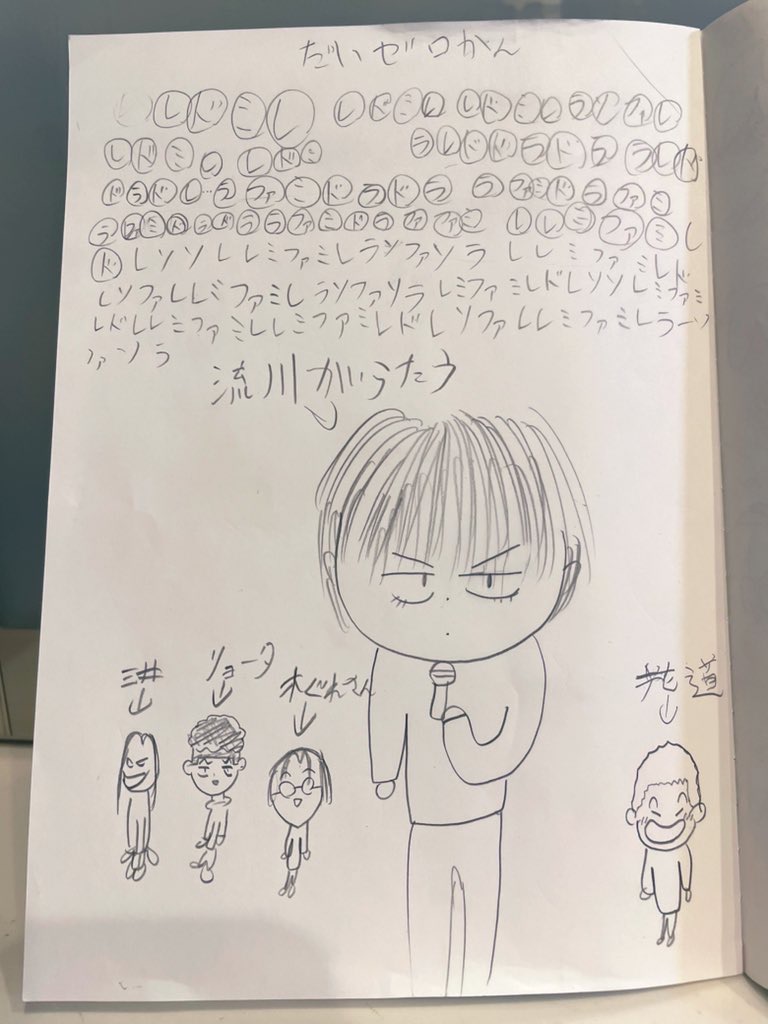 だいゼロかん
レドミレ レドミレ レドミレラドファレ
レドミレレドミ ラレドドラドラ ラレド
ドラドレーラファミドラドラ ラファミドラファミ
ラファミドラドララファミドラファファミ レレミファミレ
ドレソソレレミファミレラソファソラ レレミファミレド
レソファレレミファミレラソファソラレミファミレドレソソレミファミ
レドレレミファミレレミファミレドレソファレレミファミレラーソ
ファソラ
流川がうたう
三井
リョータ
木ぐれさん
花道